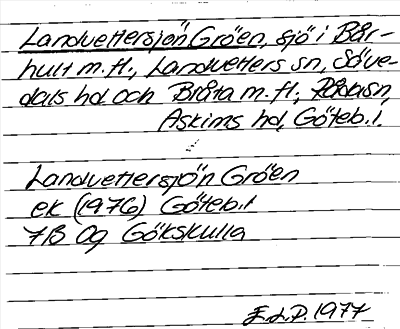 Landvettersjön Gröen, sjö i Bår-
hult m.fl., Landvetters sn, Säve-
dals hd och Bråta m.fl., Råda sn,
Askims hd, Göteb.l.
Landvettersjön Gröen
ek (1976) Göteb.l
7B 0g Gökskulla
E.L.P. 1977